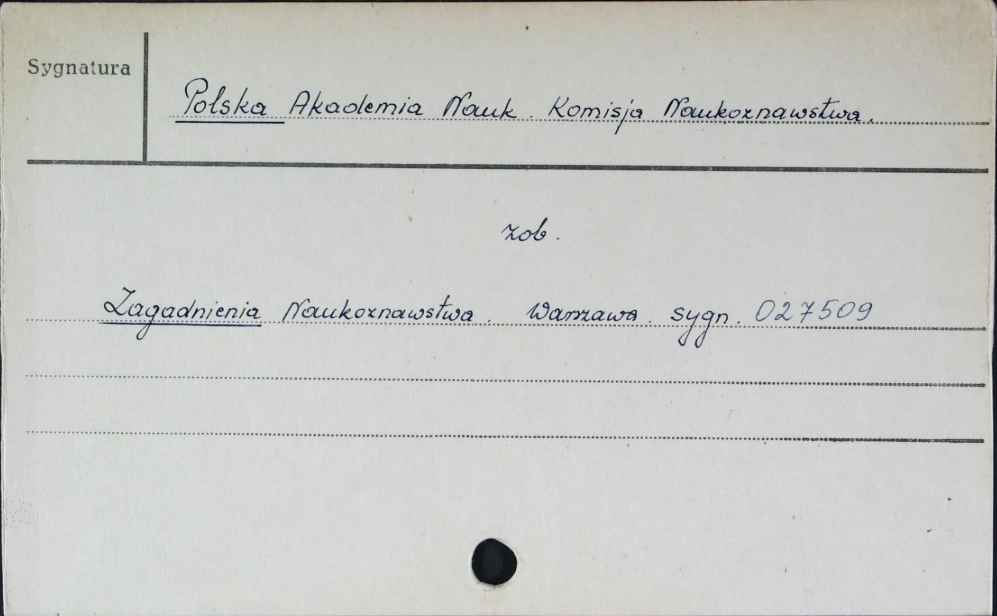 Sygnatura
Polska Akademia Nauk. Komisja Naukoznawstwa.
zob.
Zagadnienia Naukoznawstwa. Warszawa. sygn. 027509